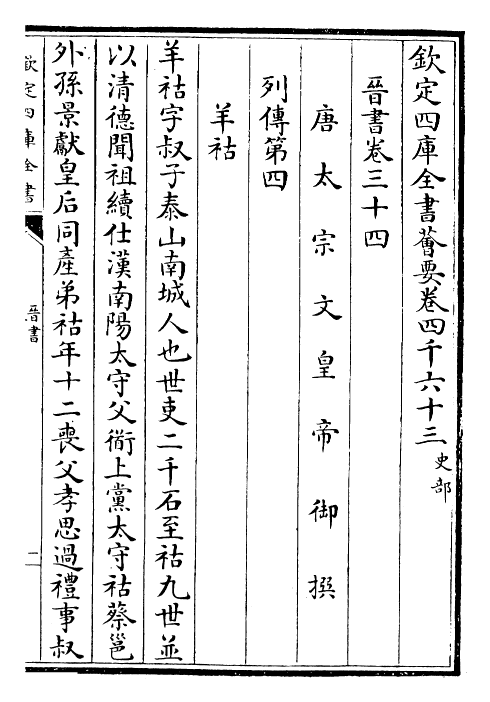 欽定四庫全書薈要卷四千六十三 史部
晉書卷三十四
唐太宗文皇帝御撰
列傳第四
羊祜
羊祜字叔子泰山南城人也世吏二千石至祜九世並
以清德聞祖續仕漢南陽太守父衜上黨太守祜蔡邕
外孫景獻皇后同產弟祜年十二喪父孝思過禮事叔
欽定四庫全書
晉書